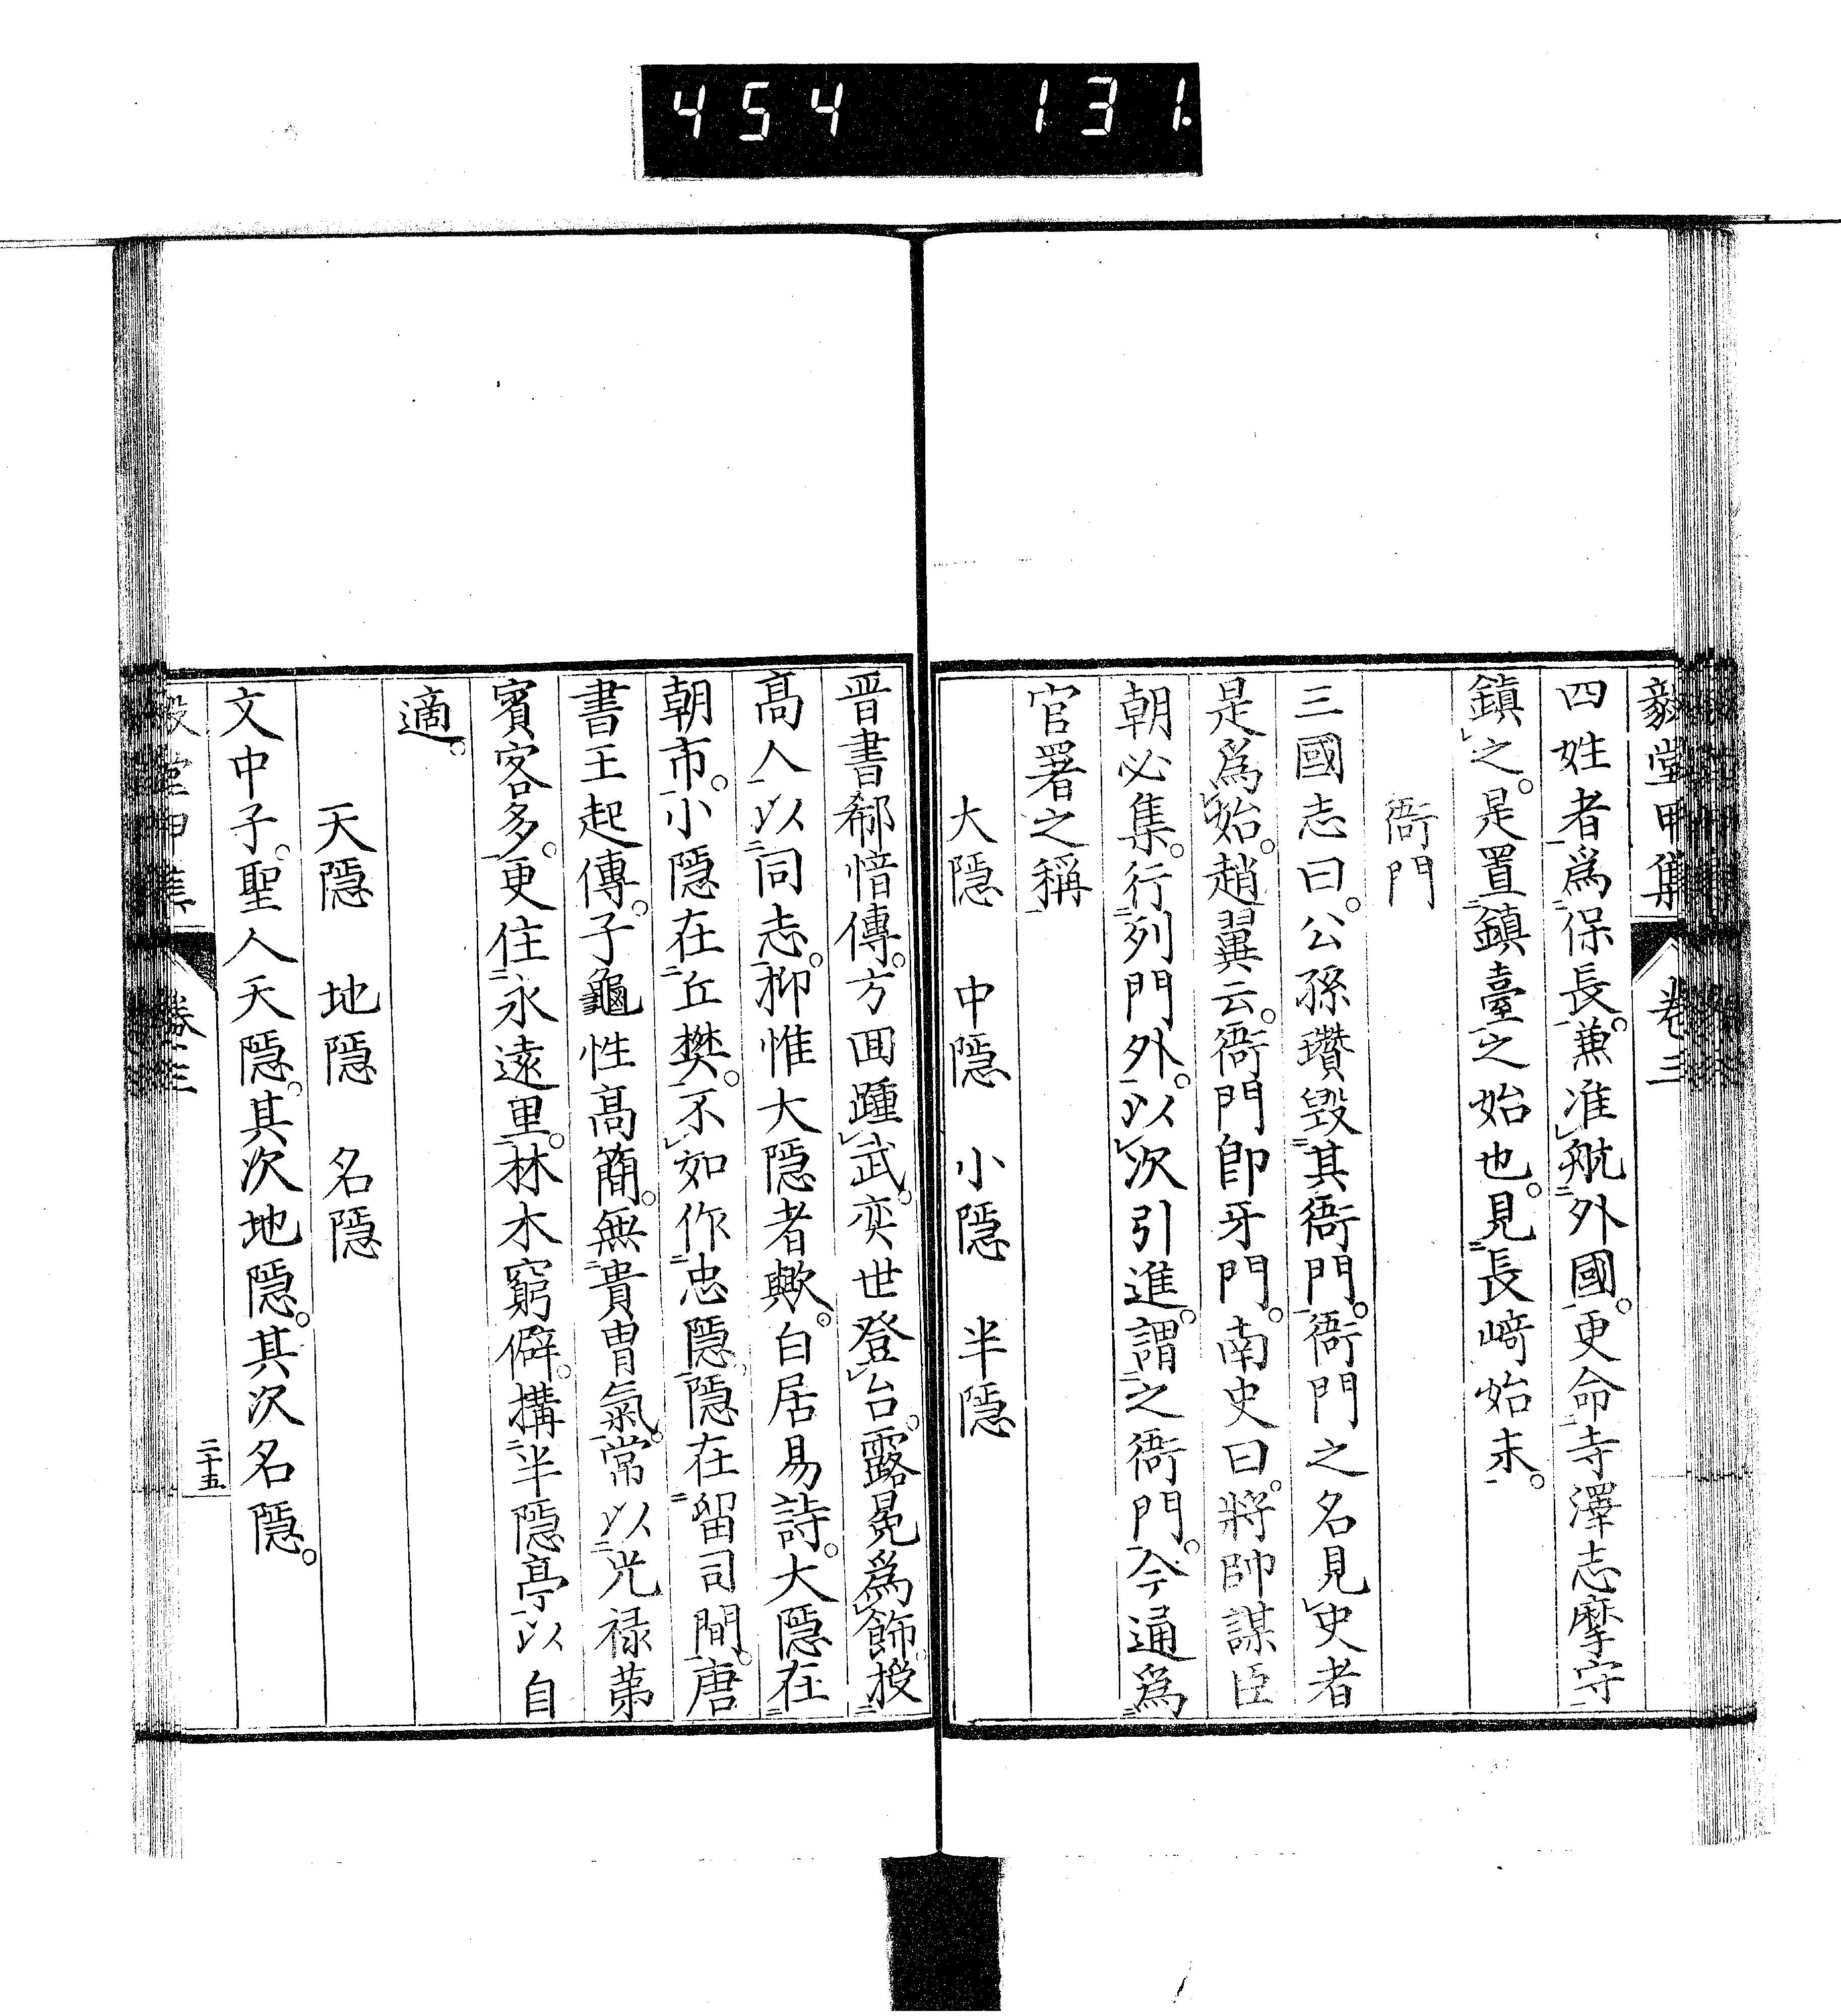 454 131.
毅堂甲集 卷三
四姓者爲保長。兼准航外國。更命寺澤志摩守
鎮之。是置鎮臺之始也。見長崎始末。
衙門
三國志曰。公孫瓚毀其衙門。衙門之名見史者
是爲始。趙翼云。衙門卽牙門。南史曰。將帥謀臣
朝必集。行列門外。以次引進。謂之衙門。今通爲
官署之稱
大隱 中隱 小隱 半隱
晋書郗愔傳。方回踵武。奕世登台。露冕爲飾。授
高人以同志。抑惟大隱者歟。白居易詩。大隱在
朝市。小隱在丘樊。不如作忠隱。隱在留司間。唐
書王起傳。子龜性高簡。無貴冑氣。常以光祿第
賓客多。更住永遠里。林木窮僻。構半隱亭以自
適。
天隱 地隱 名隱
文中子。聖人天隱。其次地隱。其次名隱。
毅堂甲集 卷三 二十五